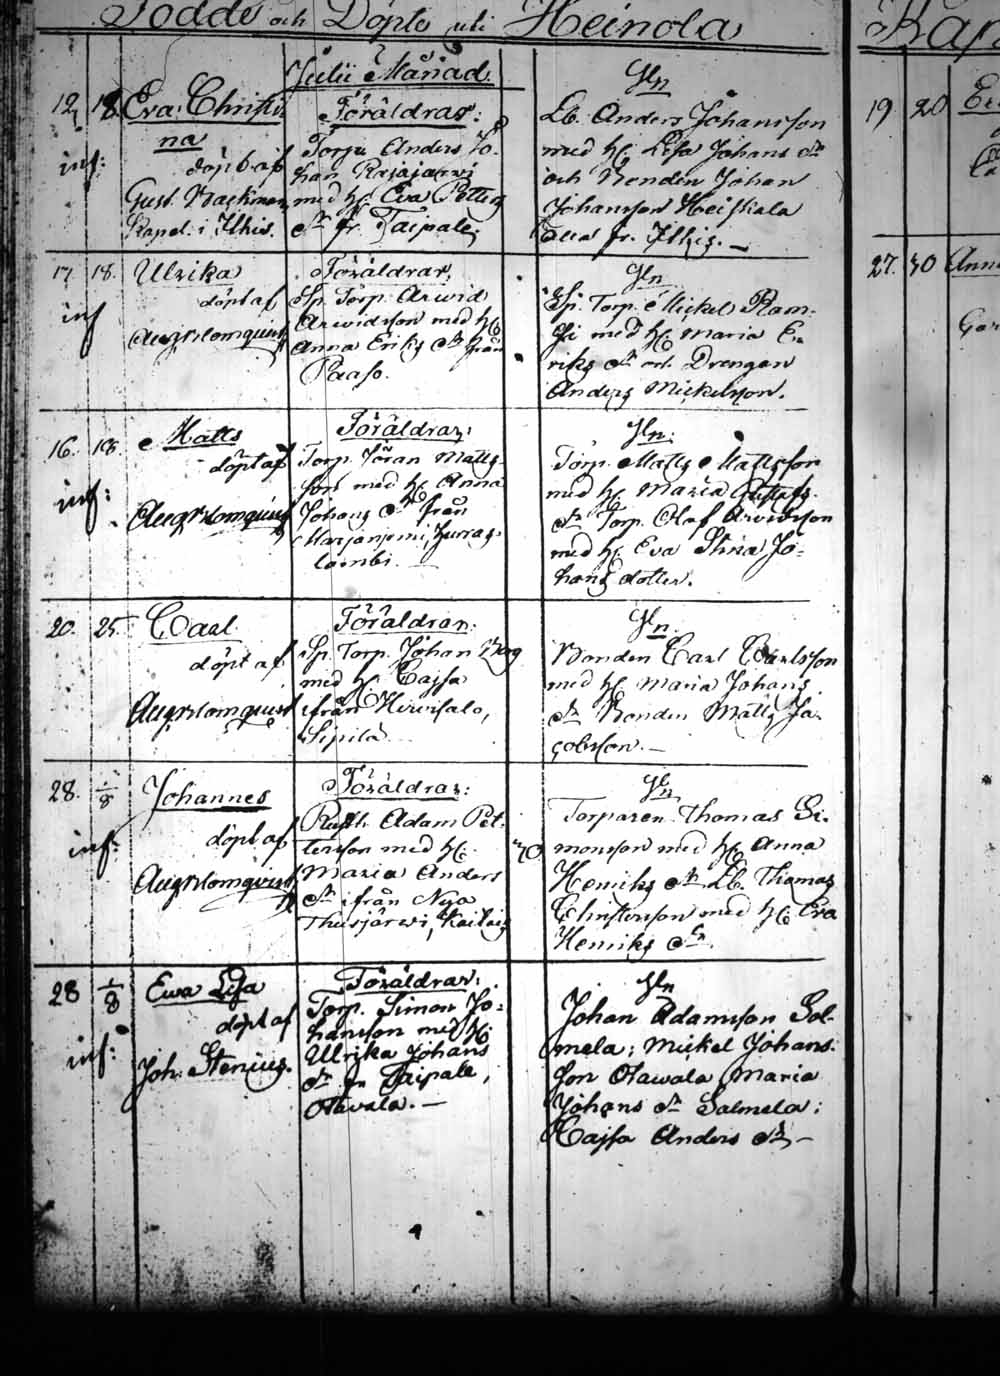 Födde och Döpte uti Heinola
Julii Månad.
12. 18. Eva Christi
na
inf: döpt af
Gust. Backman,
Kapel. i Ithis.
Föräldrar:
Torp. Anders Jo-
han Rajajärvi
med h. Eva Petters
dr fr. Taipale.
Gln
Lb. Anders Johansson
med h. Lisa Johans dr
och Bonden Johan
Johansson Heiskala
alla fr. Ithis.
17. 18. Ulrika
inf döpt af
Aug. Blomquist
Föräldrar.
Sp. Torp. Arvid
Arvidsson med h.
Anna Eriks dr från
Paaso.
Gln
Sp. Torp. Mickel Ram-
si med h. Maria E-
riks dr och Drengen
Anders Mickelsson.
16. 18. Matts
döpt af
inf:
Aug. Blomquist
Föräldrar:
Torp. Jöran Matts-
son med h. Anna
Johans dr från
Marjaniemi,
Gln:
Torp. Matts Mattsson
med h. Maria Gustafs
dr Torp. Olof Arvidsson
med h. Eva Stina Jo-
hans dotter.
20. 25. Carl
döpt af
Aug. Blomquist
Föräldrar.
Sp. Torp. Johan
med h. Cajsa
ifrån Hirvisalo,
Sipilä
Gln.
Bonden Carl Carlsson
med h. Maria Johans
dr Bonden Matts Ja-
cobsson.
28. 1/8 Johannes
inf: döpt af
Aug. Blomquist
Föräldrar:
Rusth. Adam Pet-
tersson med h.
Maria Anders
dr ifrån Nya
Thusjärvi,
Gln
Torparen Thomas Si-
monsson med h. Anna
Henriks dr, Lb. Thomas
Christersson med h. Eva
Henriks dr.
28 1/8 Ewa Lisa
döpt af
inf:
Joh. Stenius.
Föräldrar:
Torp. Simon Jo-
hansson med h.
Ulrika Johans
dr fr Taipale,
Otavala.
Gln
Johan Adamsson Sal-
mela; Mickel Johans-
son Otawala, Maria
Johans dr Salmela;
Cajsa Anders dr,
19 20
27. 30 Anna